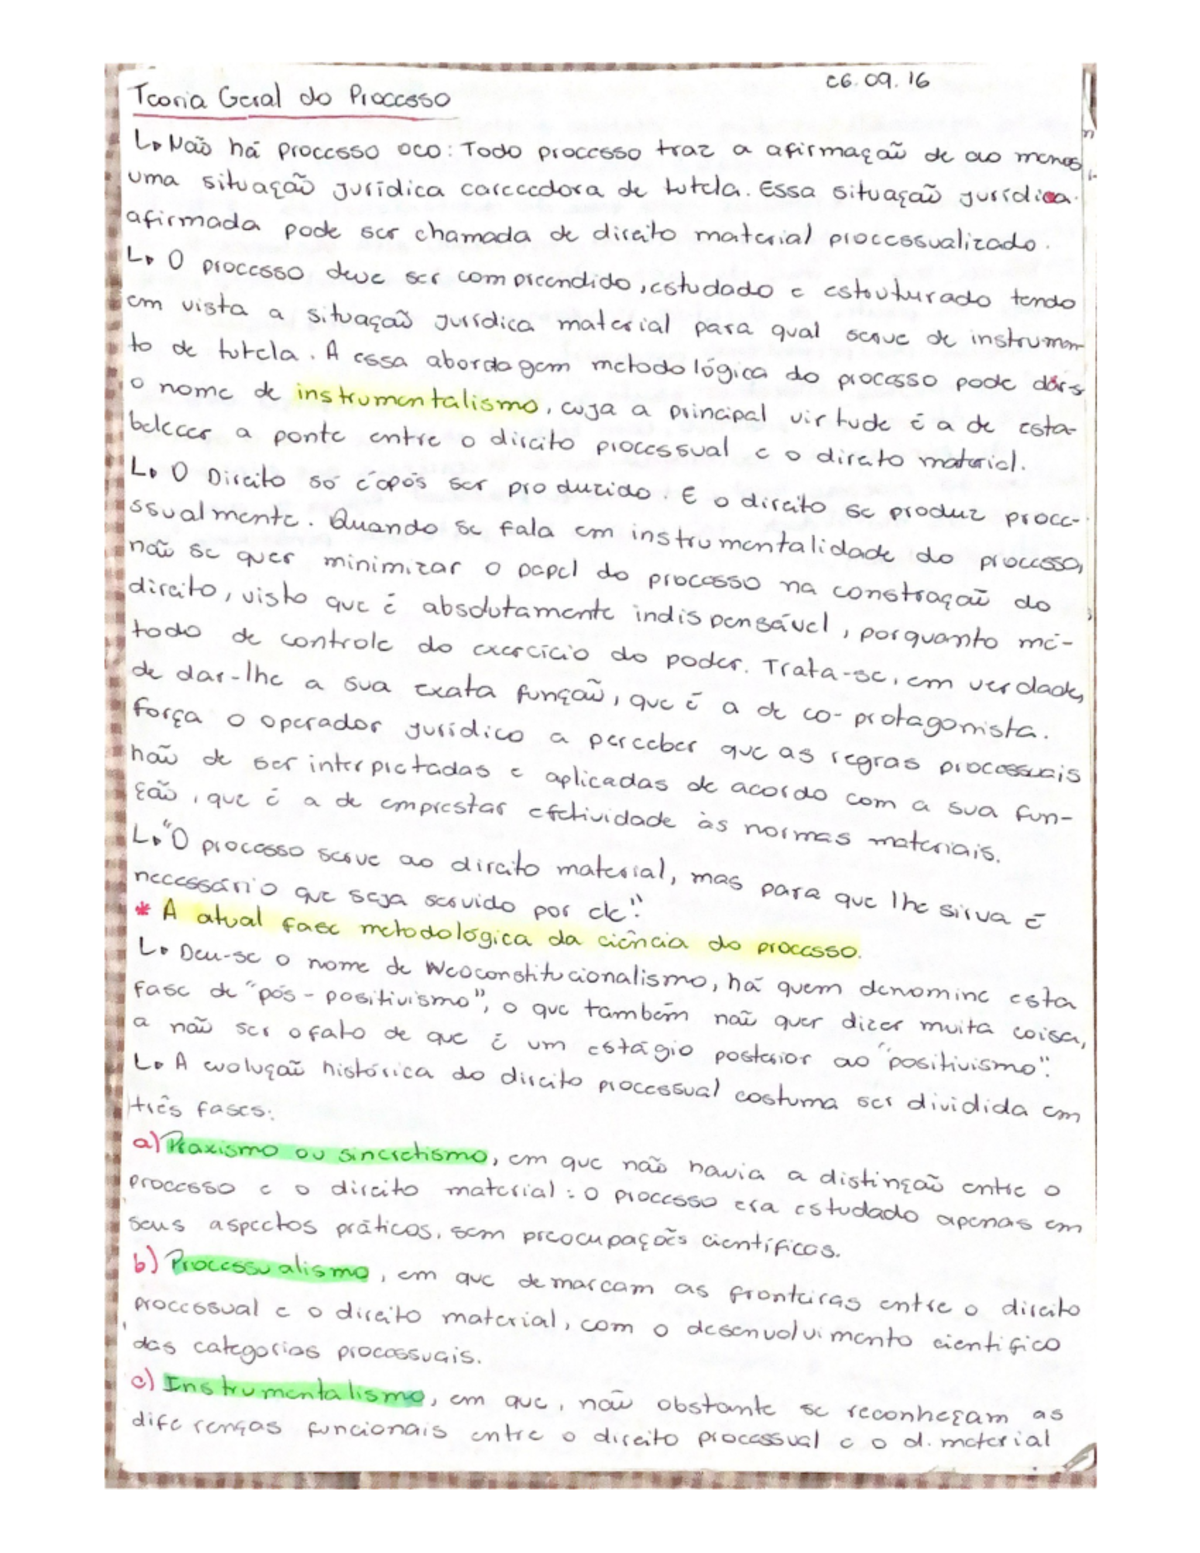 Teoria Geral do Processo
06.09.16
↳ Não há processo oco: Todo processo traz a afirmação de ao menos
uma situação jurídica carecedora de tutela. Essa situação jurídica
afirmada pode ser chamada de direito material processualizado.
↳ O processo deve ser compreendido, estudado e estruturado tendo
em vista a situação jurídica material para qual serve de instrumen-
to de tutela. A essa abordagem metodológica do processo pode dars
o nome de instrumentalismo, cuja a principal virtude é a de esta-
belecer a ponte entre o direito processual e o direito material.
↳ O Direito só é após ser produzido. E o direito se produz proce-
ssualmente. Quando se fala em instrumentalidade do processo,
não se quer minimizar o papel do processo na construção do
direito, visto que é absolutamente indispensável, porquanto mé-
todo de controle do exercício do poder. Trata-se, em verdade,
de dar-lhe a sua exata função, que é a de co-protagonista.
Força o operador jurídico a perceber que as regras processuais
hão de ser interpretadas e aplicadas de acordo com a sua fun-
ção, que é a de emprestar efetividade às normas materiais.
↳ "O processo serve ao direito material, mas para que lhe sirva é
necessário que seja servido por ele".
* A atual fase metodológica da ciência do processo.
↳ Deu-se o nome de Neoconstitucionalismo, há quem denomine esta
fase de "pós-positivismo", o que também não quer dizer muita coisa,
a não ser o fato de que é um estágio posterior ao "positivismo".
↳ A evolução histórica do direito processual costuma ser dividida em
três fases:
a) Praxismo ou sincretismo, em que não havia a distinção entre o
processo e o direito material: o processo era estudado apenas em
seus aspectos práticos, sem preocupações científicas.
b) Processualismo, em que demarcam as fronteiras entre o direito
processual e o direito material, com o desenvolvimento científico
das categorias processuais.
c) Instrumentalismo, em que, não obstante se reconheçam as
diferenças funcionais entre o direito processual e o d. material